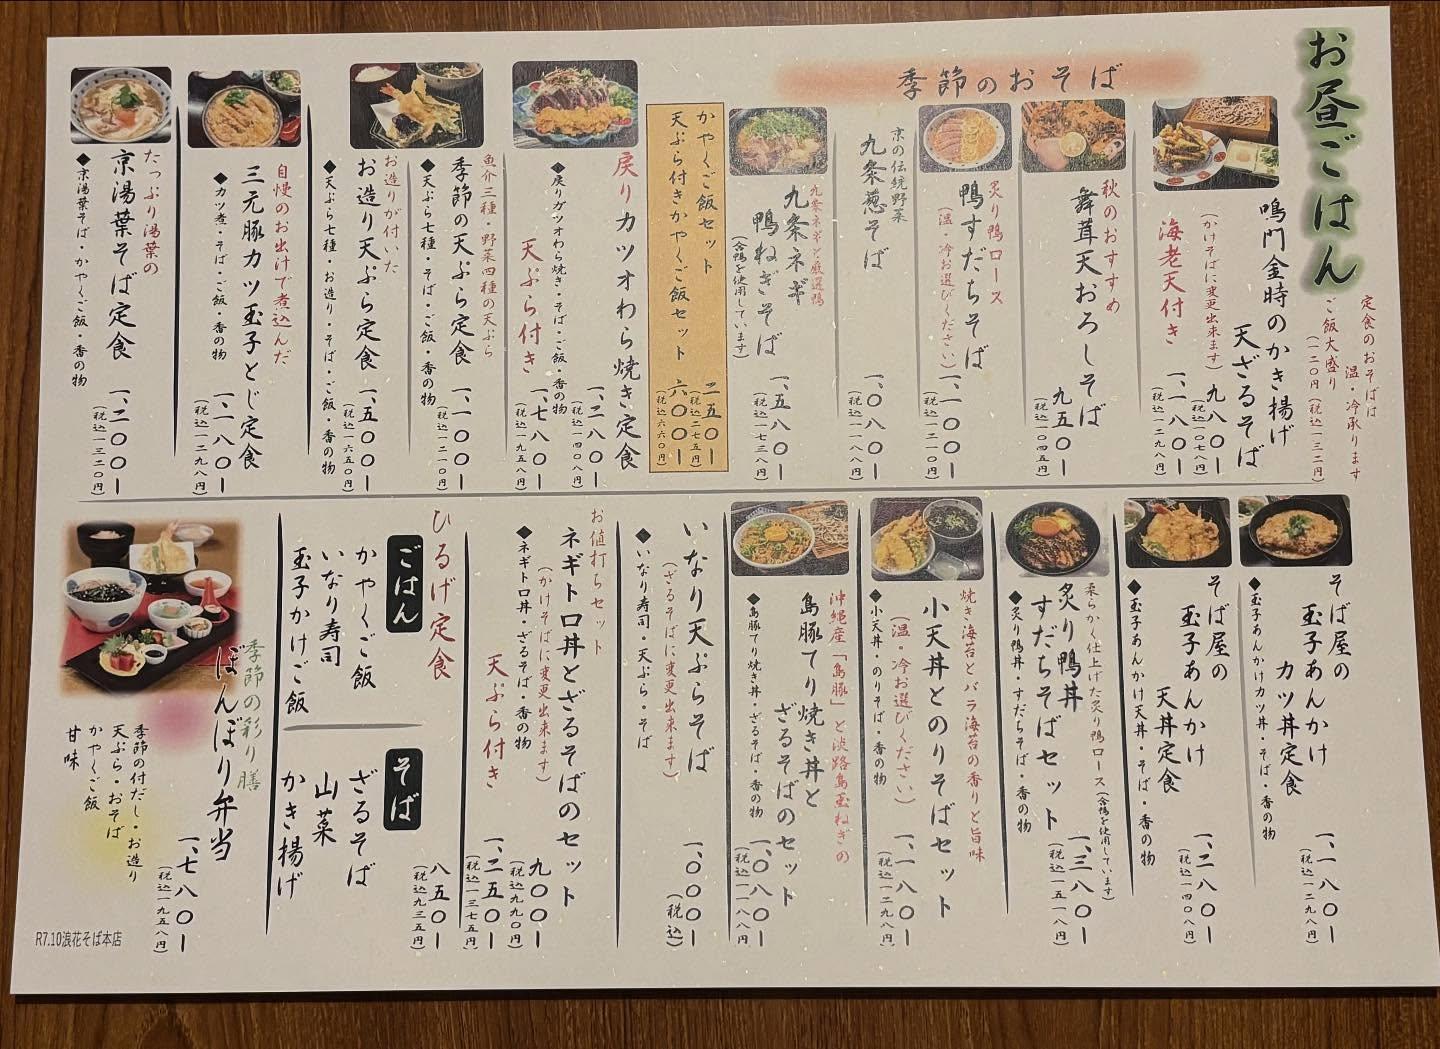 お昼ごはん
定食のおそばは
温・冷承ります
ご飯大盛り
(一二〇円(税込一三二円)
季節のおそば
鳴門金時のかき揚げ
天ざるそば
九八〇ー
(税込一〇七八円)
(かけそばに変更出来ます)
海老天付き
一、一八〇ー
(税込一二九八円)
秋のおすすめ
舞茸天おろしそば
九五〇ー
(税込一〇四五円)
炙り鴨ロース
鴨すだちそば
(温・冷お選びください)
一、一〇〇ー
(税込一二一〇円)
京の伝統野菜
九条葱そば
一、〇八〇ー
(税込一一八八円)
九条ネギと厳選鴨
九条ネギ
鴨ねぎそば
(合鴨を使用しています)
一、五八〇ー
(税込一七三八円)
かやくご飯セット
二五〇ー
(税込二七五円)
天ぷら付きかやくご飯セット
六〇〇ー
(税込六六〇円)
戻りカツオわら焼き定食
一、二八〇ー
(税込一四〇八円)
◆戻りガツオわら焼き・そば・ご飯・香の物
天ぷら付き
一、七八〇ー
(税込一九五八円)
魚介三種・野菜四種の天ぷら
季節の天ぷら定食
一、一〇〇ー
(税込一二一〇円)
◆天ぷら七種・そば・ご飯・香の物
お造りが付いた
お造り天ぷら定食
一、五〇〇ー
(税込一六五〇円)
◆天ぷら七種・お造り・そば・ご飯・香の物
自慢のお出汁で煮込んだ
三元豚カツ玉子とじ定食
一、一八〇ー
(税込一二九八円)
◆カツ煮・そば・ご飯・香の物
たっぷり湯葉の
京湯葉そば定食
一、二〇〇ー
(税込一三二〇円)
◆京湯葉そば・かやくご飯・香の物
そば屋の
玉子あんかけ
カツ丼定食
一、一八〇ー
(税込一二九八円)
◆玉子あんかけカツ丼・そば・香の物
そば屋の
玉子あんかけ
天丼定食
一、二八〇ー
(税込一四〇八円)
◆玉子あんかけ天丼・そば・香の物
柔らかく仕上げた炙り鴨ロース(合鴨を使用しています)
炙り鴨丼
すだちそばセット
一、三八〇ー
(税込一五一八円)
◆炙り鴨丼・すだちそば・香の物
焼き海苔とバラ海苔の香りと旨味
小天丼とのりそばセット
(温・冷お選びください)
一、一八〇ー
(税込一二九八円)
◆小天丼・のりそば・香の物
沖縄産「島豚」と淡路島玉ねぎの
島豚てり焼き丼と
ざるそばのセット
一、〇八〇ー
(税込一一八八円)
◆島豚てり焼き丼・ざるそば・香の物
いなり天ぷらそば
(ざるそばに変更出来ます)
一、〇〇〇ー
(税込)
◆いなり寿司・天ぷら・そば
お値打ちセット
ネギトロ丼とざるそばのセット
九〇〇ー
(税込九九〇円)
(かけそばに変更出来ます)
◆ネギトロ丼・ざるそば・香の物
天ぷら付き
一、二五〇ー
(税込一三七五円)
ひるげ定食
八五〇ー
(税込九三五円)
ごはん
かやくご飯
いなり寿司
玉子かけご飯
そば
ざるそば
山菜
かき揚げ
季節の彩り膳
ぼんぼり弁当
一、七八〇ー
(税込一九五八円)
季節の付だし・お造り
天ぷら・おそば
かやくご飯
甘味
R7.10浪花そば本店